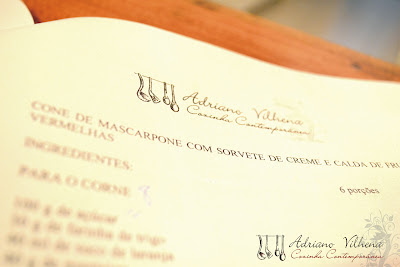 Adriano Vilhena
Cozinha Contemporânea
CONE DE MASCARPONE COM SORVETE DE CREME E CALDA DE FRU
VERMELHAS
INGREDIENTES:
6 porções
PARA O CORNE
100 g de açúcar
50 g de farinha de trigo
50 ml de suco de laranja
Adriano Vilhena
Cozinha Contemporânea